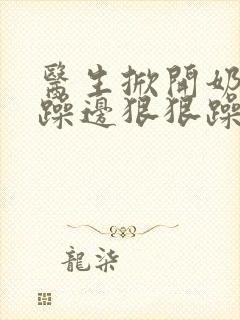 醫生掀開奶
躁邊狠狠躁
龍柒